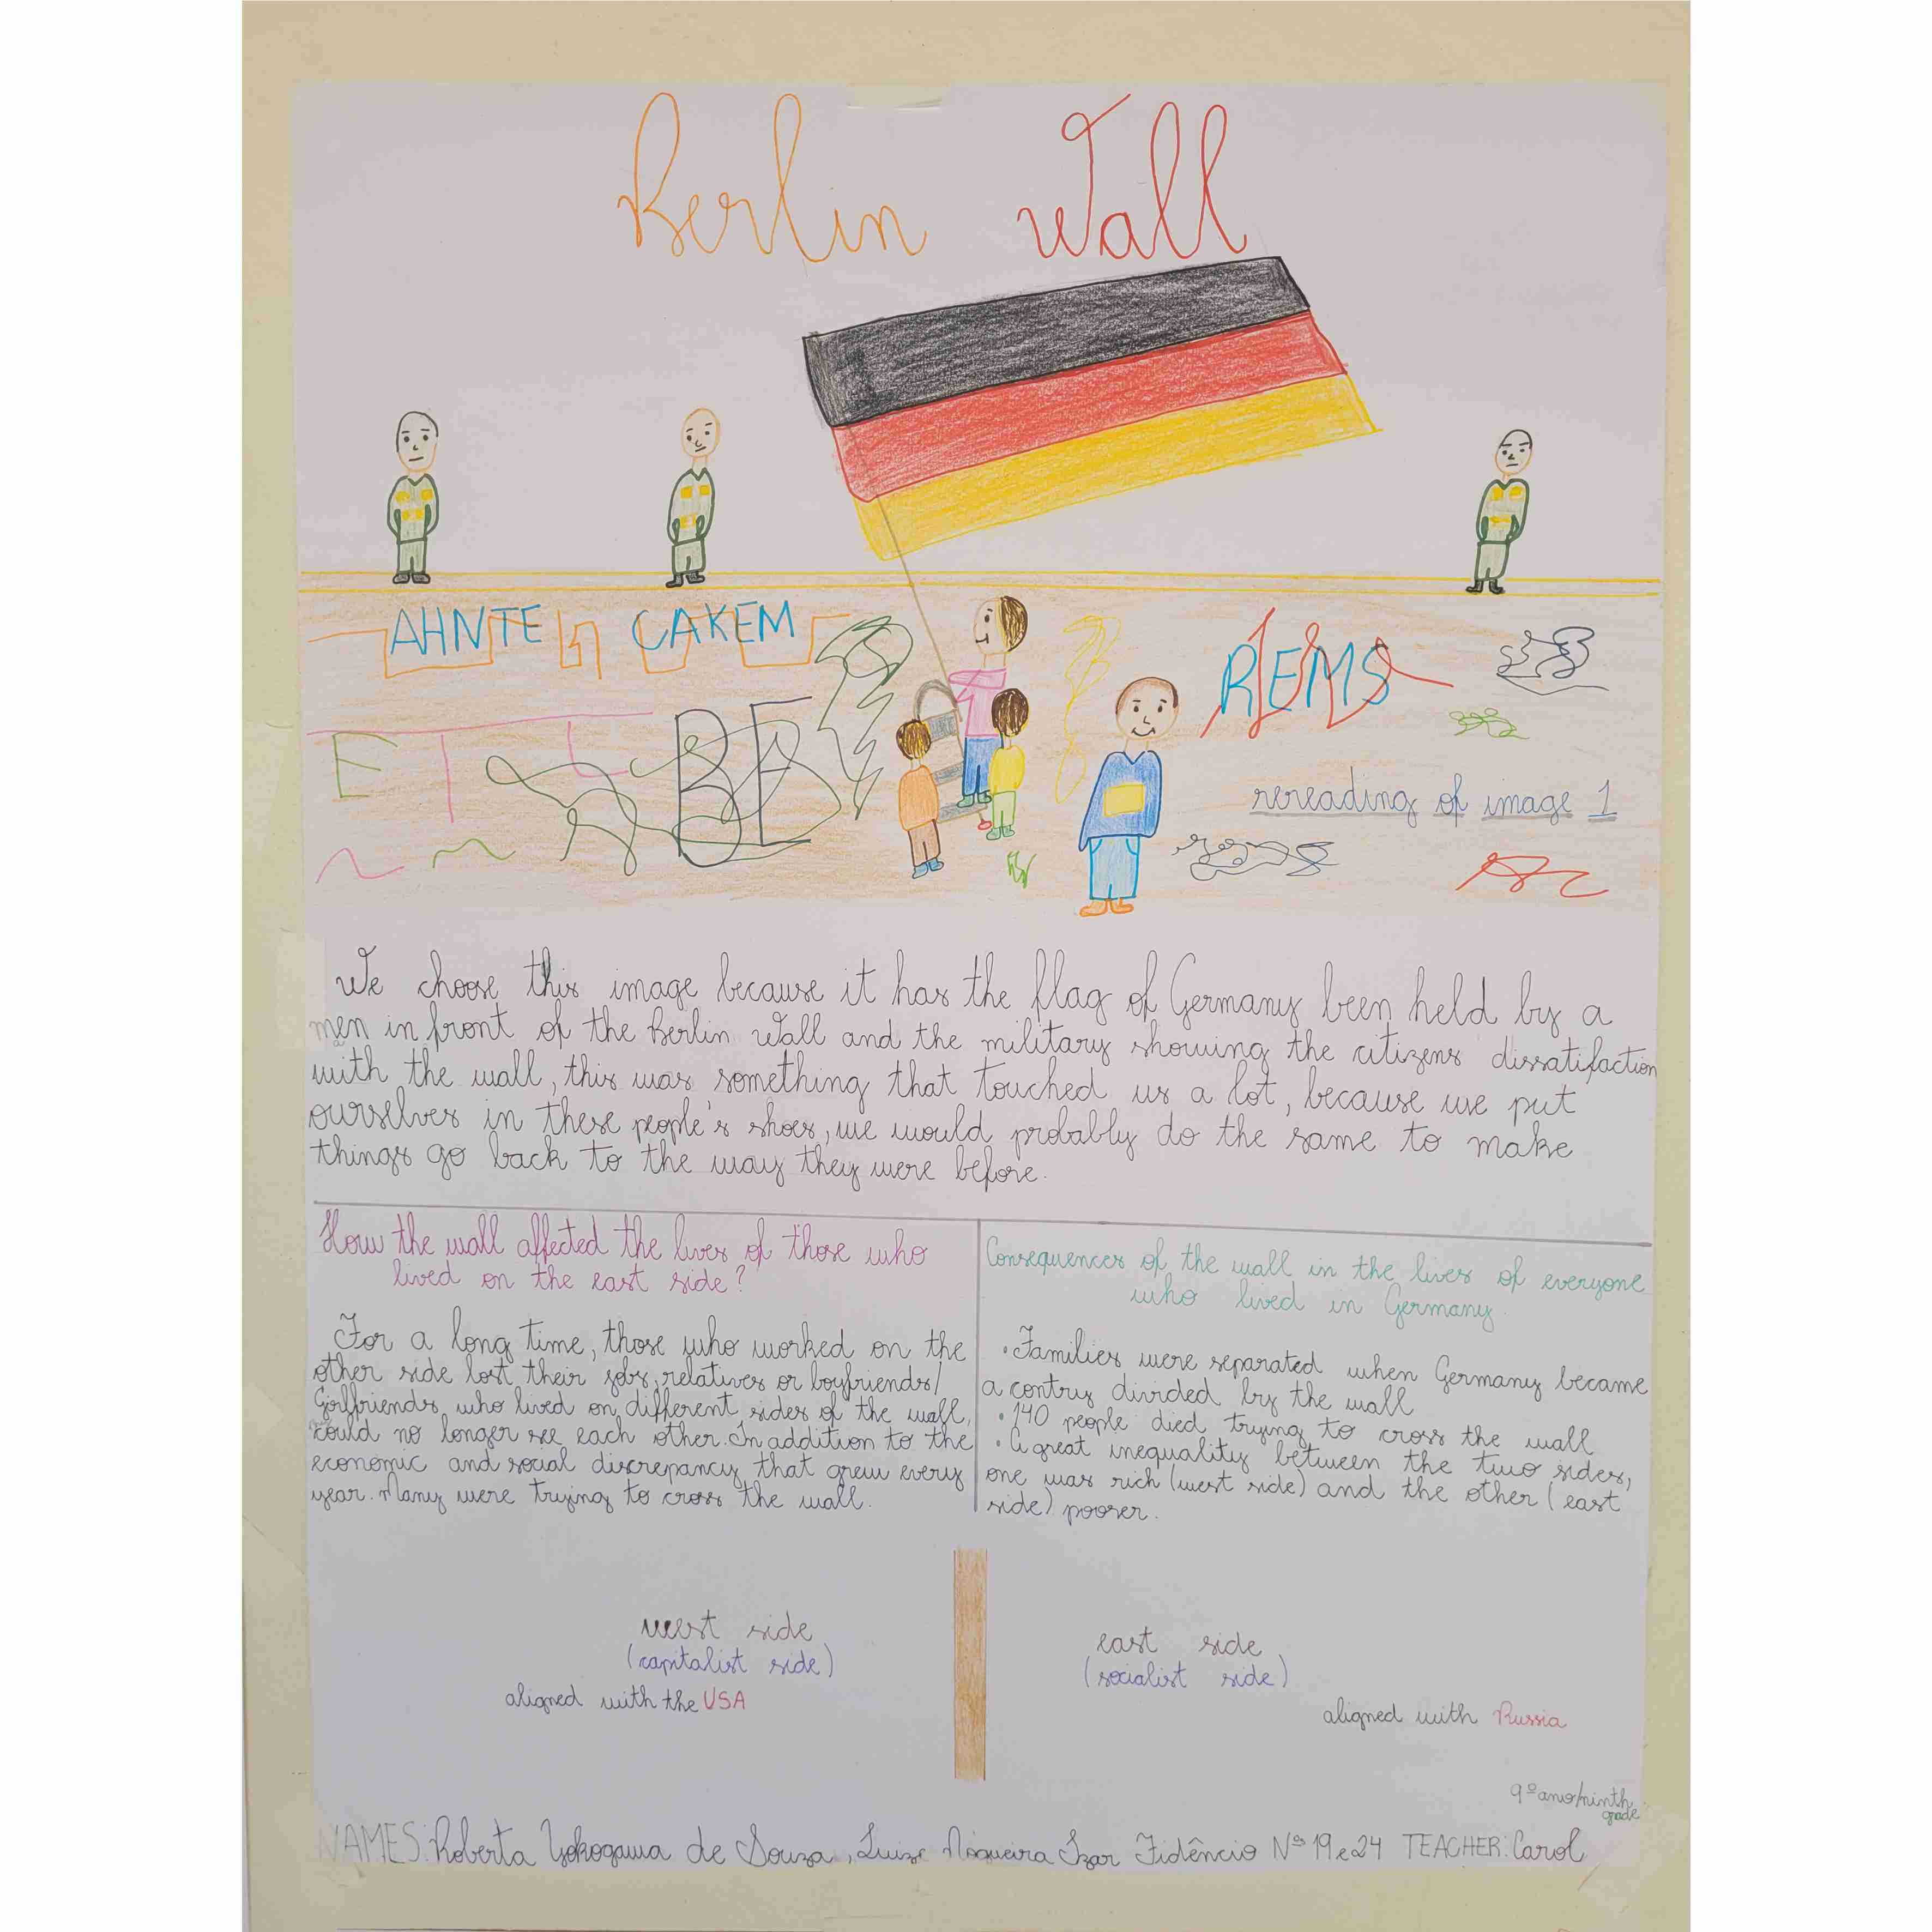 Berlin Wall
AHNTE CAKEM
REMS
E T L BE
rereading of image 1
We choose this image because it has the flag of Germany been held by a
men in front of the Berlin Wall and the military showing the citizens dissatifaction
with the wall, this was something that touched us a lot, because we put
ourselves in these people's shoes, we would probably do the same to make
things go back to the way they were before.
How the wall affected the lives of those who
lived on the east side?
For a long time, those who worked on the
other side lost their jobs, relatives or boyfriends/
Girlfriends, who lived on different sides of the wall,
could no longer see each other. In addition to the
economic and social discrepancy that grew every
year. Many were trying to cross the wall.
Consequences of the wall in the lives of everyone
who lived in Germany.
• Families were separated when Germany became
a contry divided by the wall
• 140 people died trying to cross the wall
• A great inequality between the two sides,
one was rich (west side) and the other (east
side) poorer.
west side
(capitalist side)
aligned with the USA
east side
(socialist side)
aligned with Russia
9º ano/ninth
grade
NAMES: Roberta Yokogawa de Souza, Luiza Nogueira Izar Fidêncio Nºs 19 e 24 TEACHER: Carol